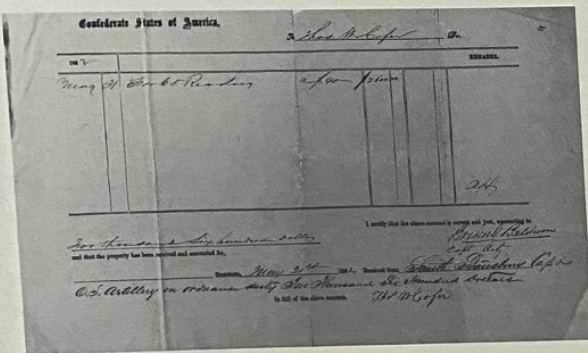 Confederate States of America,
To Thos W. Cofer Dr.
186 2 REMARKS.
May 21 For 65 @ $40 $2600
I certify that the above account is correct and just, amounting to
Two thousand Six hundred dollars
Capt Arty
and that the property has been received and accounted for,
May 21st 186 2, Received from Smith Capt
C. S. Artillery on ordnance duty Two Thousand Six Hundred Dollars
in full of the above account. Thos W. Cofer